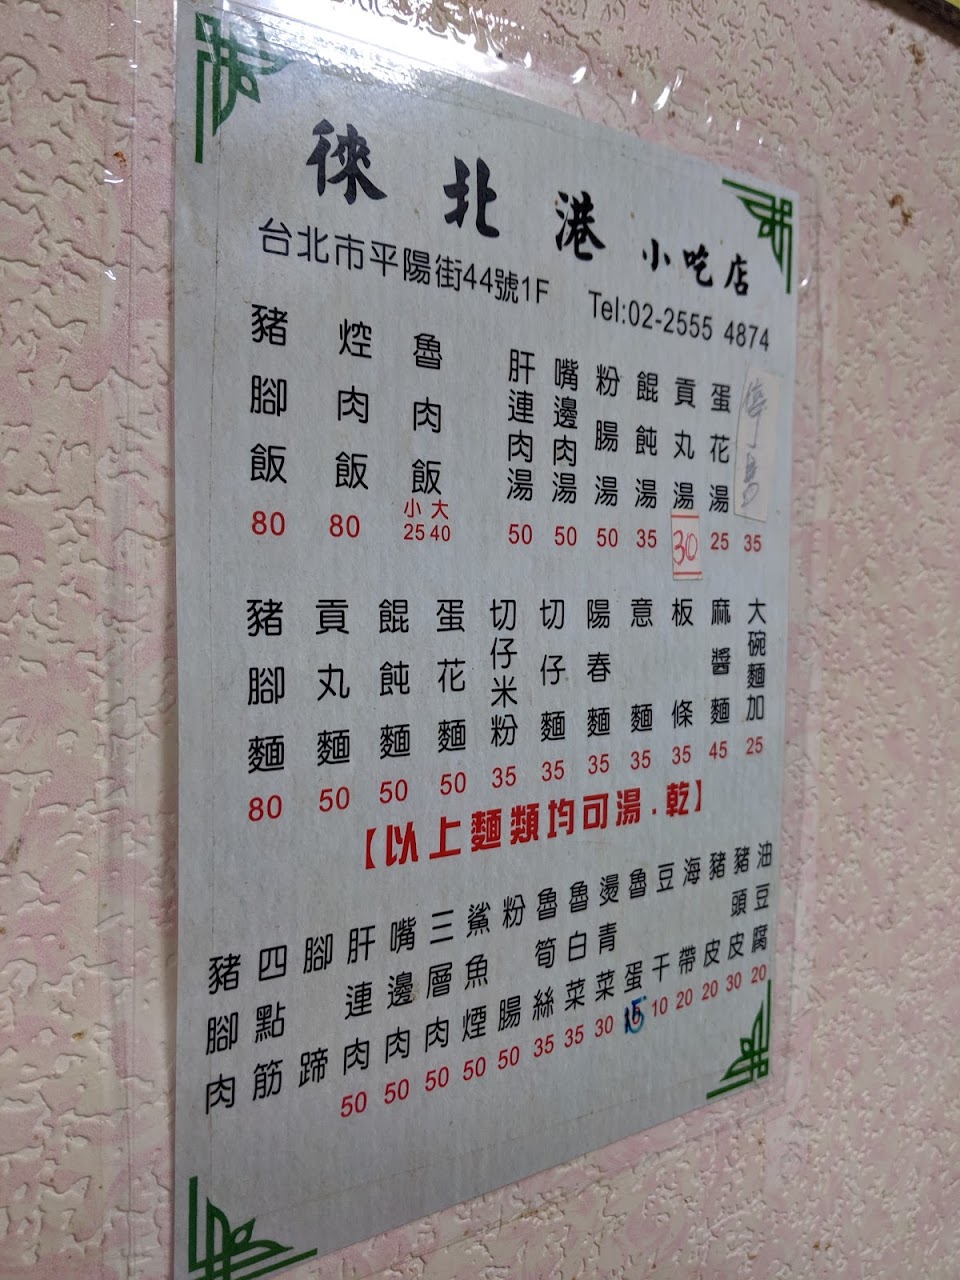 徠北港小吃店
台北市平陽街44號1F Tel:02-2555 4874
豬腳飯 80
焢肉飯 80
魯肉飯 小25 大40
肝連肉湯 50
嘴邊肉湯 50
粉腸湯 50
餛飩湯 35
貢丸湯 30
蛋花湯 25
35
豬腳麵 80
貢丸麵 50
餛飩麵 50
蛋花麵 50
切仔米粉 35
切仔麵 35
陽春麵 35
意麵 35
板條 35
麻醬麵 45
大碗麵加 25
【以上麵類均可湯.乾】
豬腳肉
四點筋
腳蹄
肝連肉 50
嘴邊肉 50
三層肉 50
鯊魚煙 50
粉腸 50
魯筍絲 35
魯白菜 35
燙青菜 30
魯蛋 15
豆干 10
海帶 20
豬皮 20
豬頭皮 30
油豆腐 20